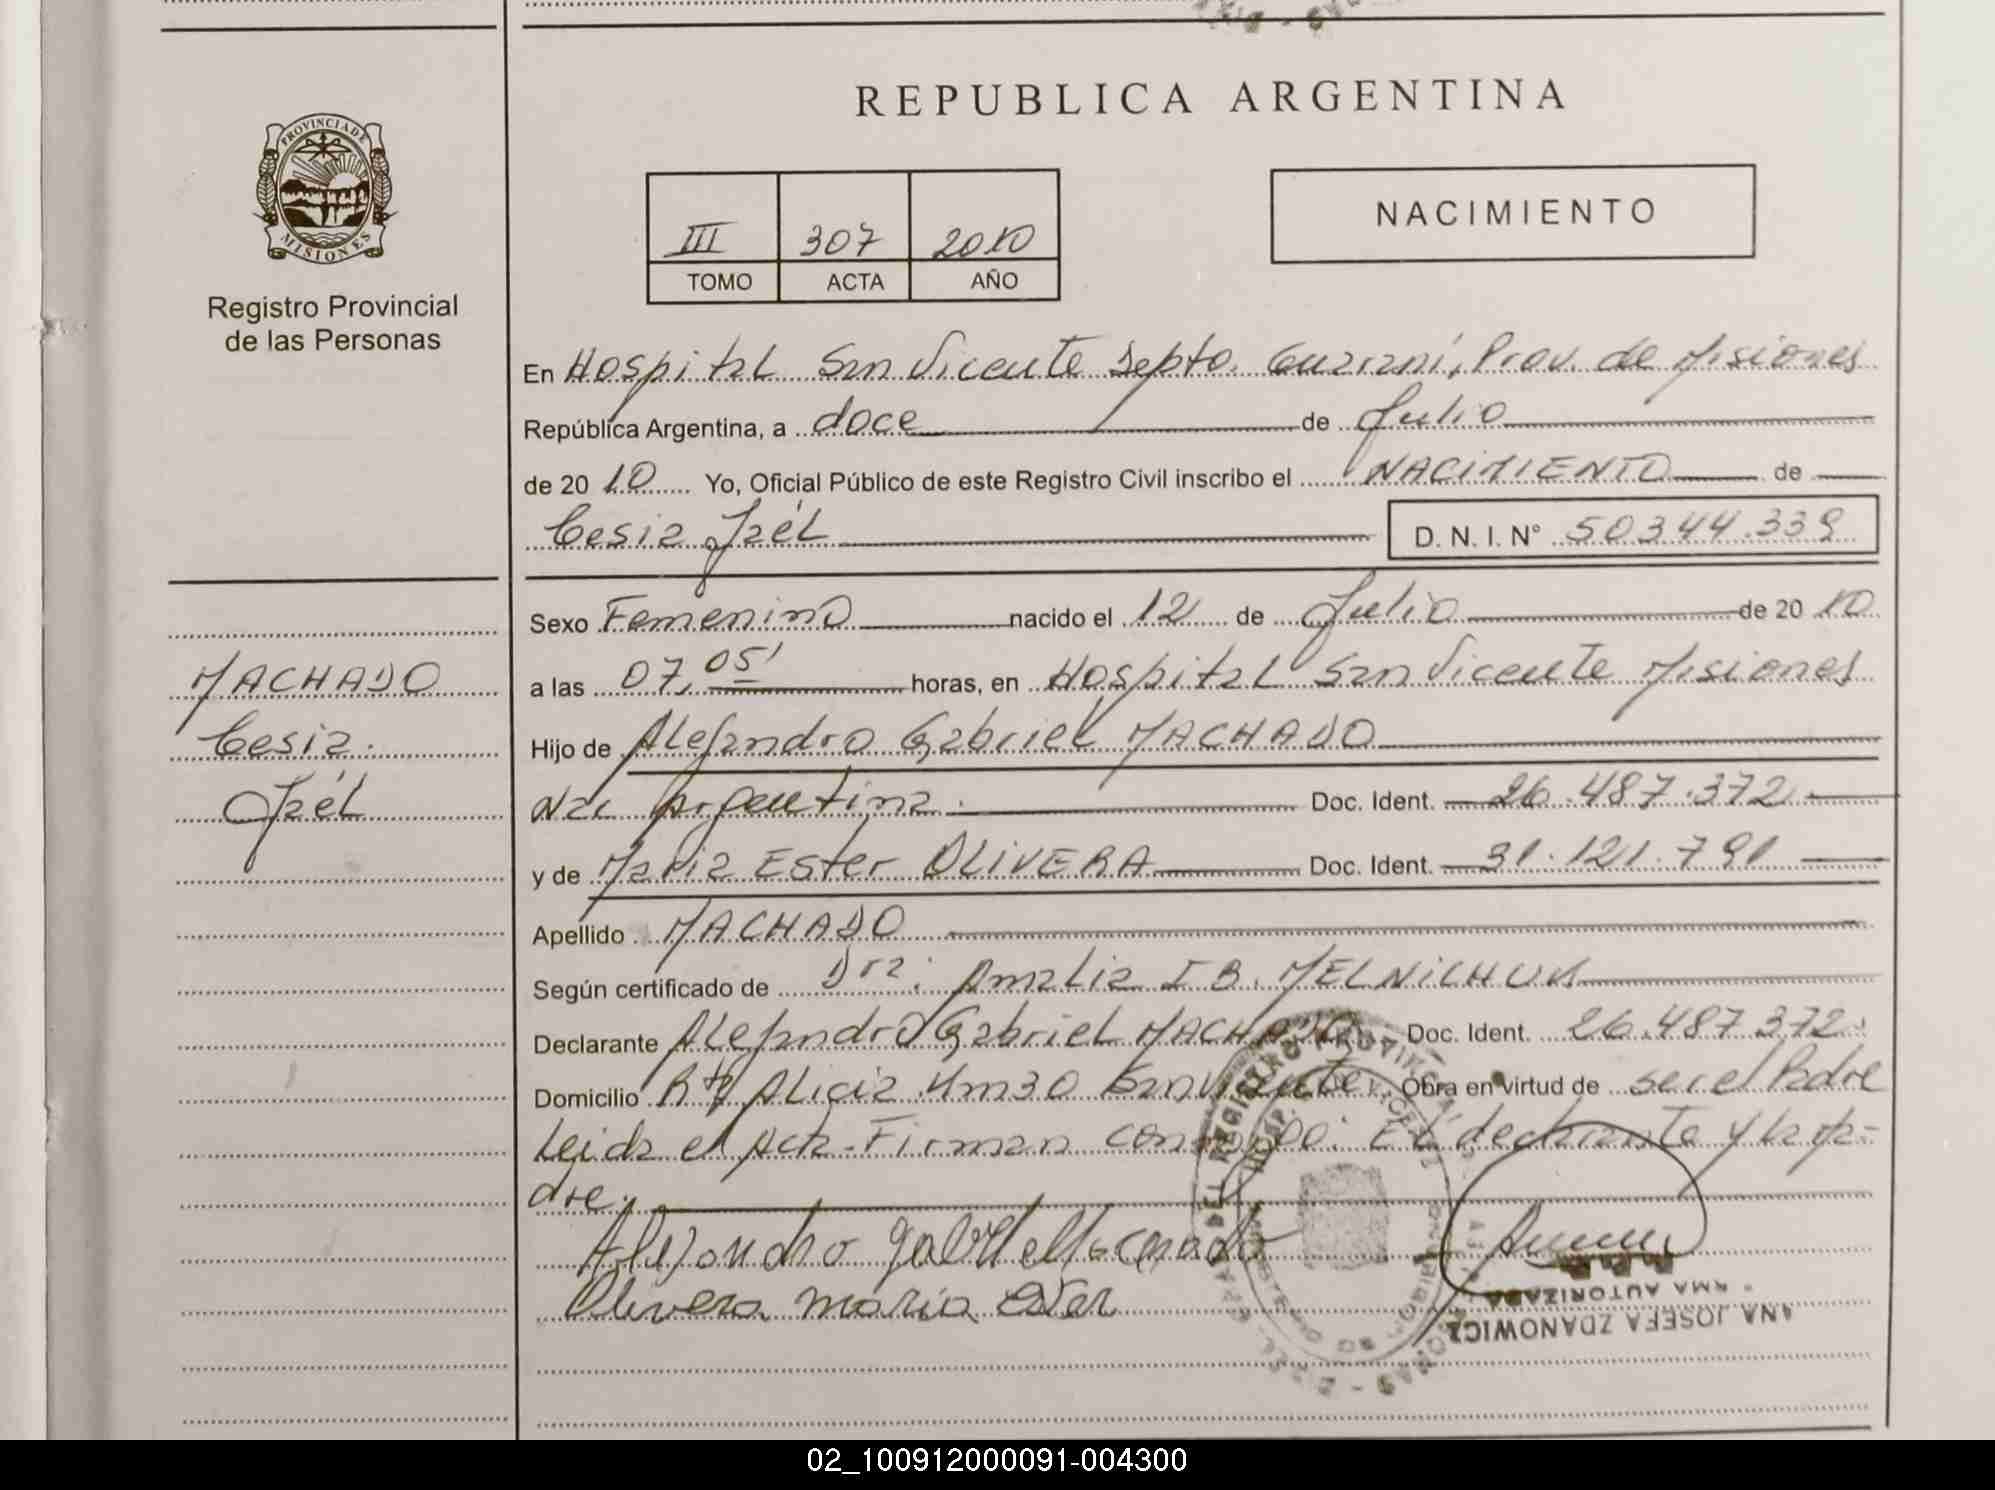 REPUBLICA ARGENTINA
PROVINCIA DE
MISIONES
Registro Provincial
de las Personas
III 307 2010
TOMO ACTA AÑO
NACIMIENTO
En Hospital San Vicente Depto. Guaraní, Prov. de Misiones
República Argentina, a doce de Julio
de 2010 Yo, Oficial Público de este Registro Civil inscribo el NACIMIENTO de
Cesia Jaél D. N. I. N° 50344.339
Sexo Femenino nacido el 12 de Julio de 2010
a las 07,05' horas, en Hospital San Vicente Misiones
Hijo de Alejandro Gabriel MACHADO
Nac Argentina. Doc. Ident. 26.487.372
y de Maria Ester OLIVERA Doc. Ident. 31.121.791
Apellido MACHADO
Según certificado de Dra. Amalia I B. MELNICHUK
Declarante Alejandro Gabriel MACHADO Doc. Ident. 26.487.372
Domicilio Alicia Km30 San Vicente. Obra en virtud de ser el Padre
Leida el Acta-Firman El declarante y la
Alejandro Gabriel Machado
Olivera maria Ester
MACHADO
Cesia
Jaél
ANA JOSEFA ZDANOWICZ
FIRMA AUTORIZADA
02_100912000091-004300